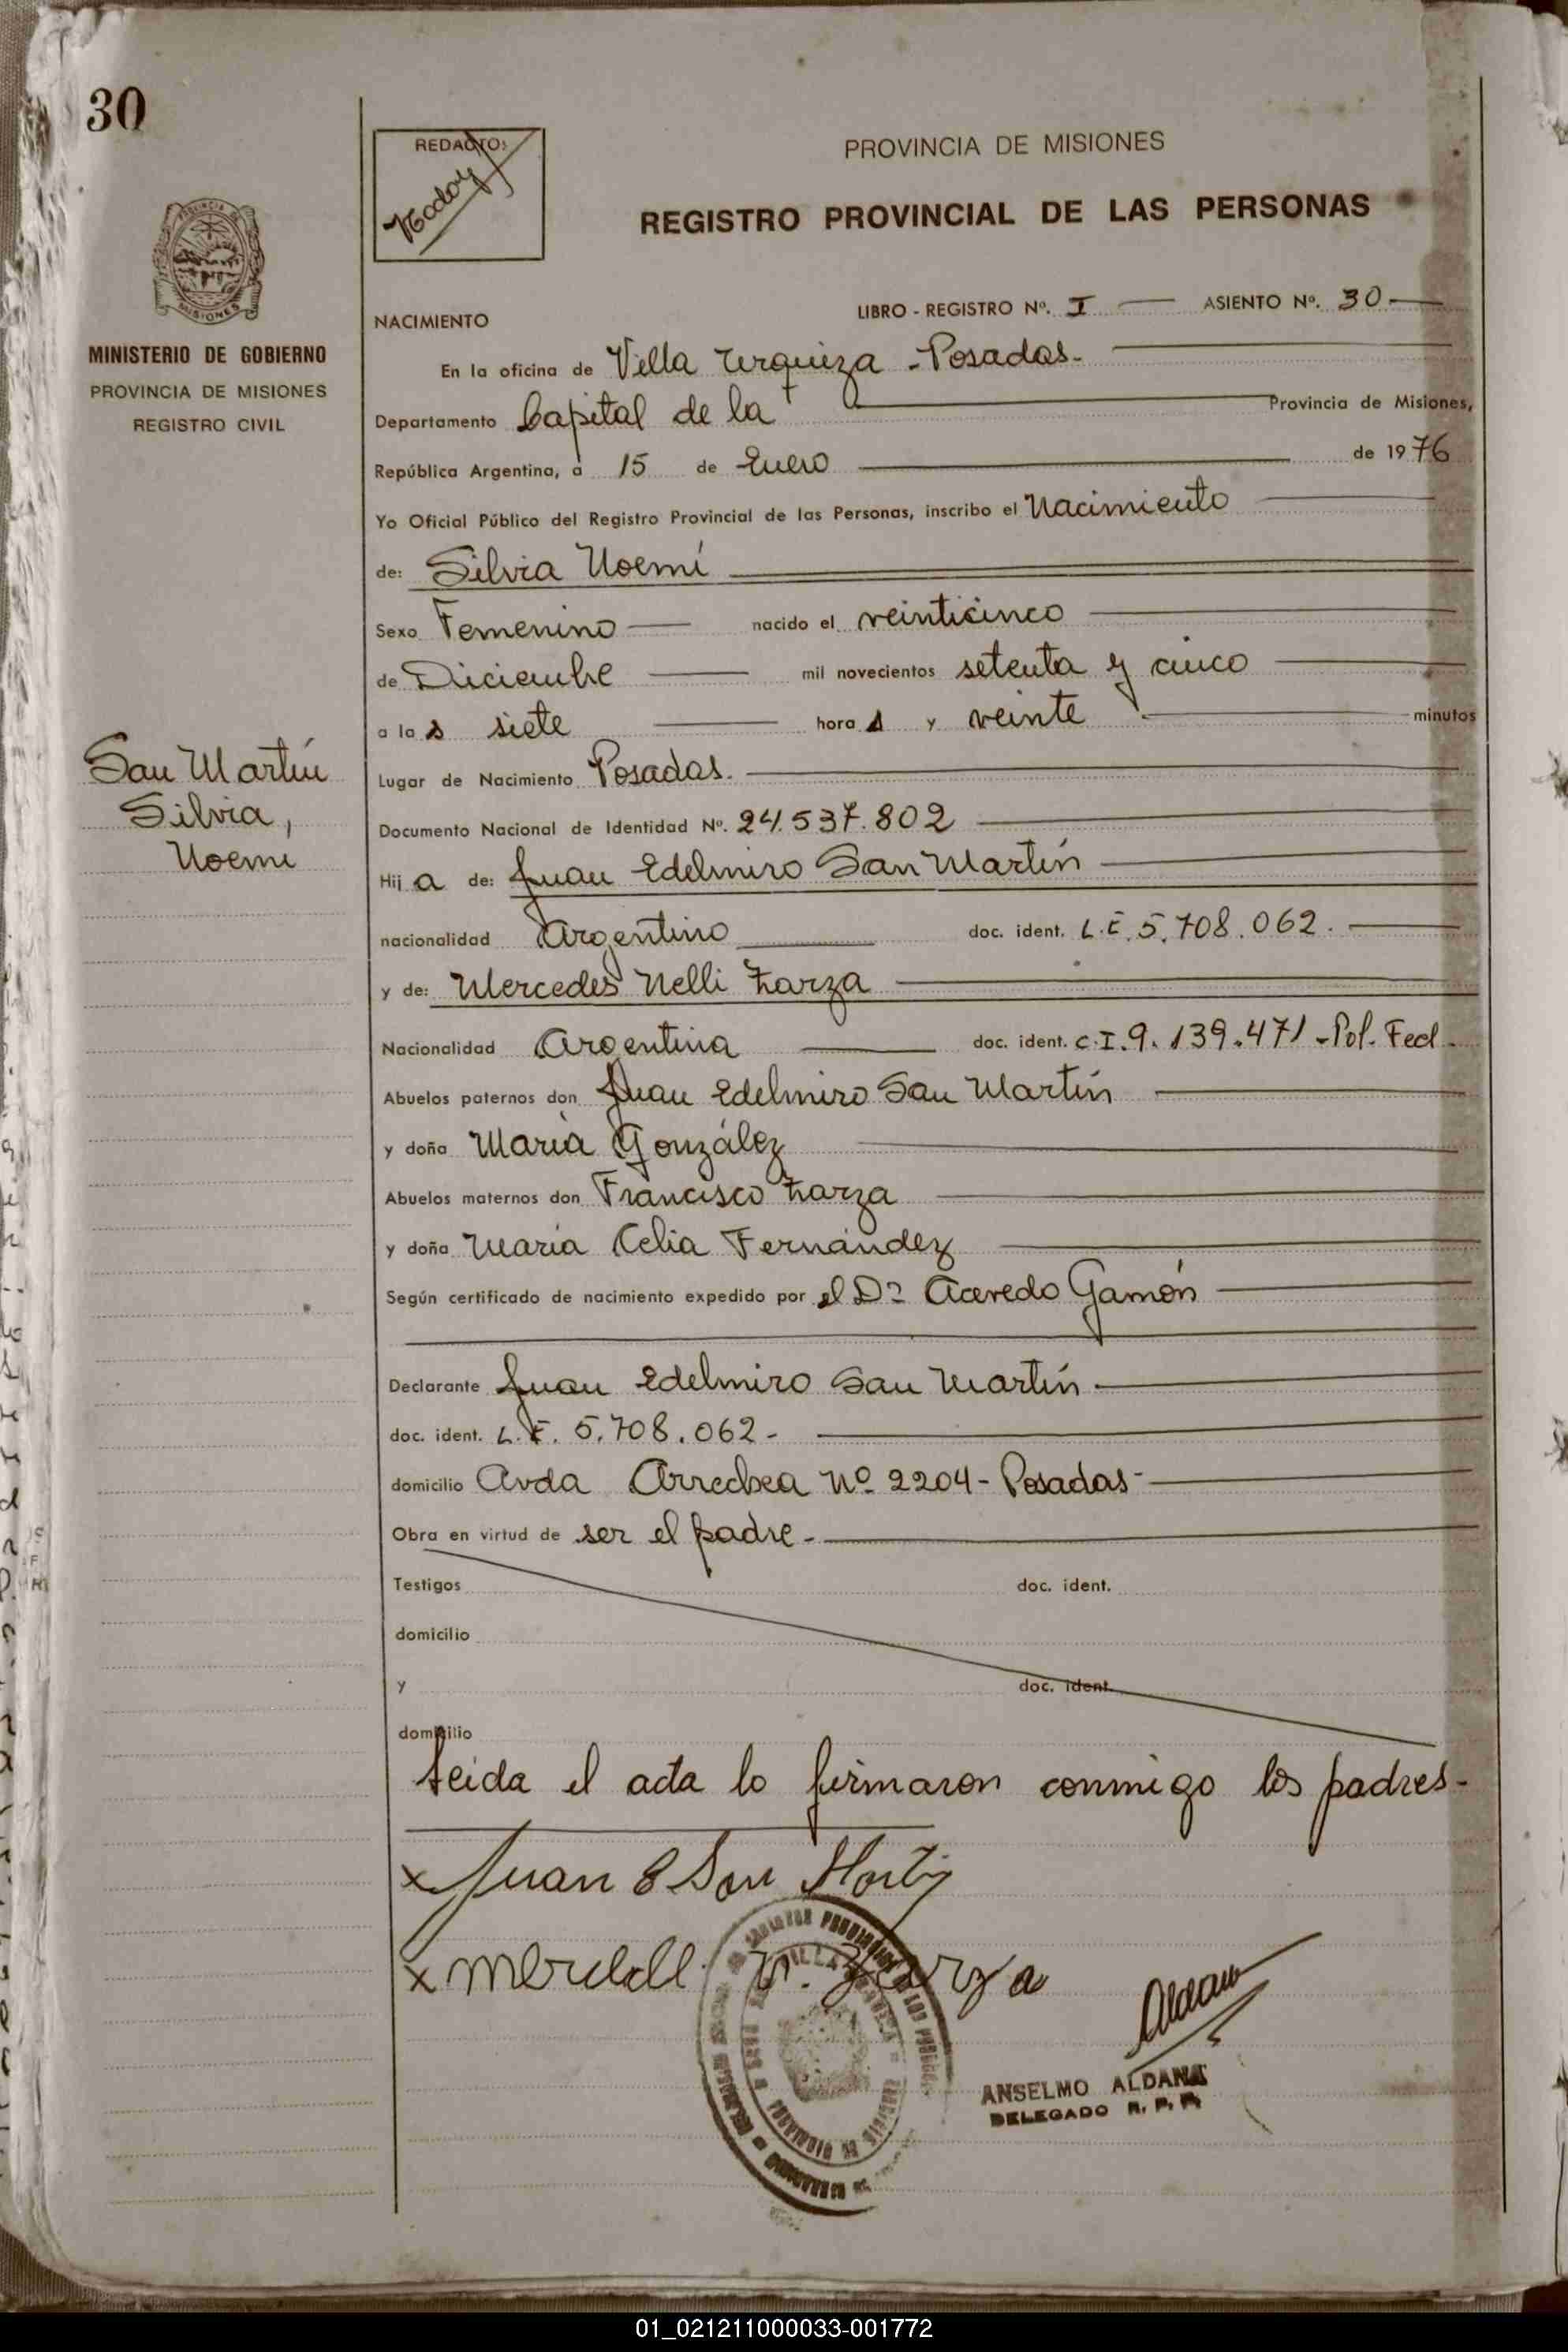 30
REDACTO:
PROVINCIA DE MISIONES
REGISTRO PROVINCIAL DE LAS PERSONAS
MISIONES
MINISTERIO DE GOBIERNO
PROVINCIA DE MISIONES
REGISTRO CIVIL
NACIMIENTO LIBRO - REGISTRO Nº. I ASIENTO Nº. 30
En la oficina de Villa Urquiza - Posadas -
Departamento Capital de la Provincia de Misiones,
República Argentina, a 15 de Enero de 1976
Yo Oficial Público del Registro Provincial de las Personas, inscribo el Nacimiento
de: Silvia Noemí
Sexo Femenino nacido el veinticinco
de Diciembre mil novecientos setenta y cinco
a las siete horas y veinte minutos
San Martín
Silvia,
Noemi
Lugar de Nacimiento Posadas.
Documento Nacional de Identidad Nº. 24.537.802
Hija de: Juan Edelmiro San Martín
nacionalidad Argentino doc. ident. L.E. 5.708.062.
y de: Mercedes Nelli Zarza
Nacionalidad Argentina doc. ident. C.I. 9.139.471 - Pol. Fed.
Abuelos paternos don Juan Edelmiro San Martín
y doña María González
Abuelos maternos don Francisco Zarza
y doña María Celia Fernández
Según certificado de nacimiento expedido por el Dr Acevedo Gamón
Declarante Juan Edelmiro San Martín
doc. ident. L.E. 5.708.062 -
domicilio Avda Arrechea Nº 2204 - Posadas -
Obra en virtud de ser el padre -
Testigos doc. ident.
domicilio
y doc. ident.
domicilio
Leida el acta lo firmaron conmigo los padres -
x Juan E San Martin
x N. Zarza
Aldana
ANSELMO ALDANA
DELEGADO R. P. P.
01_021211000033-001772